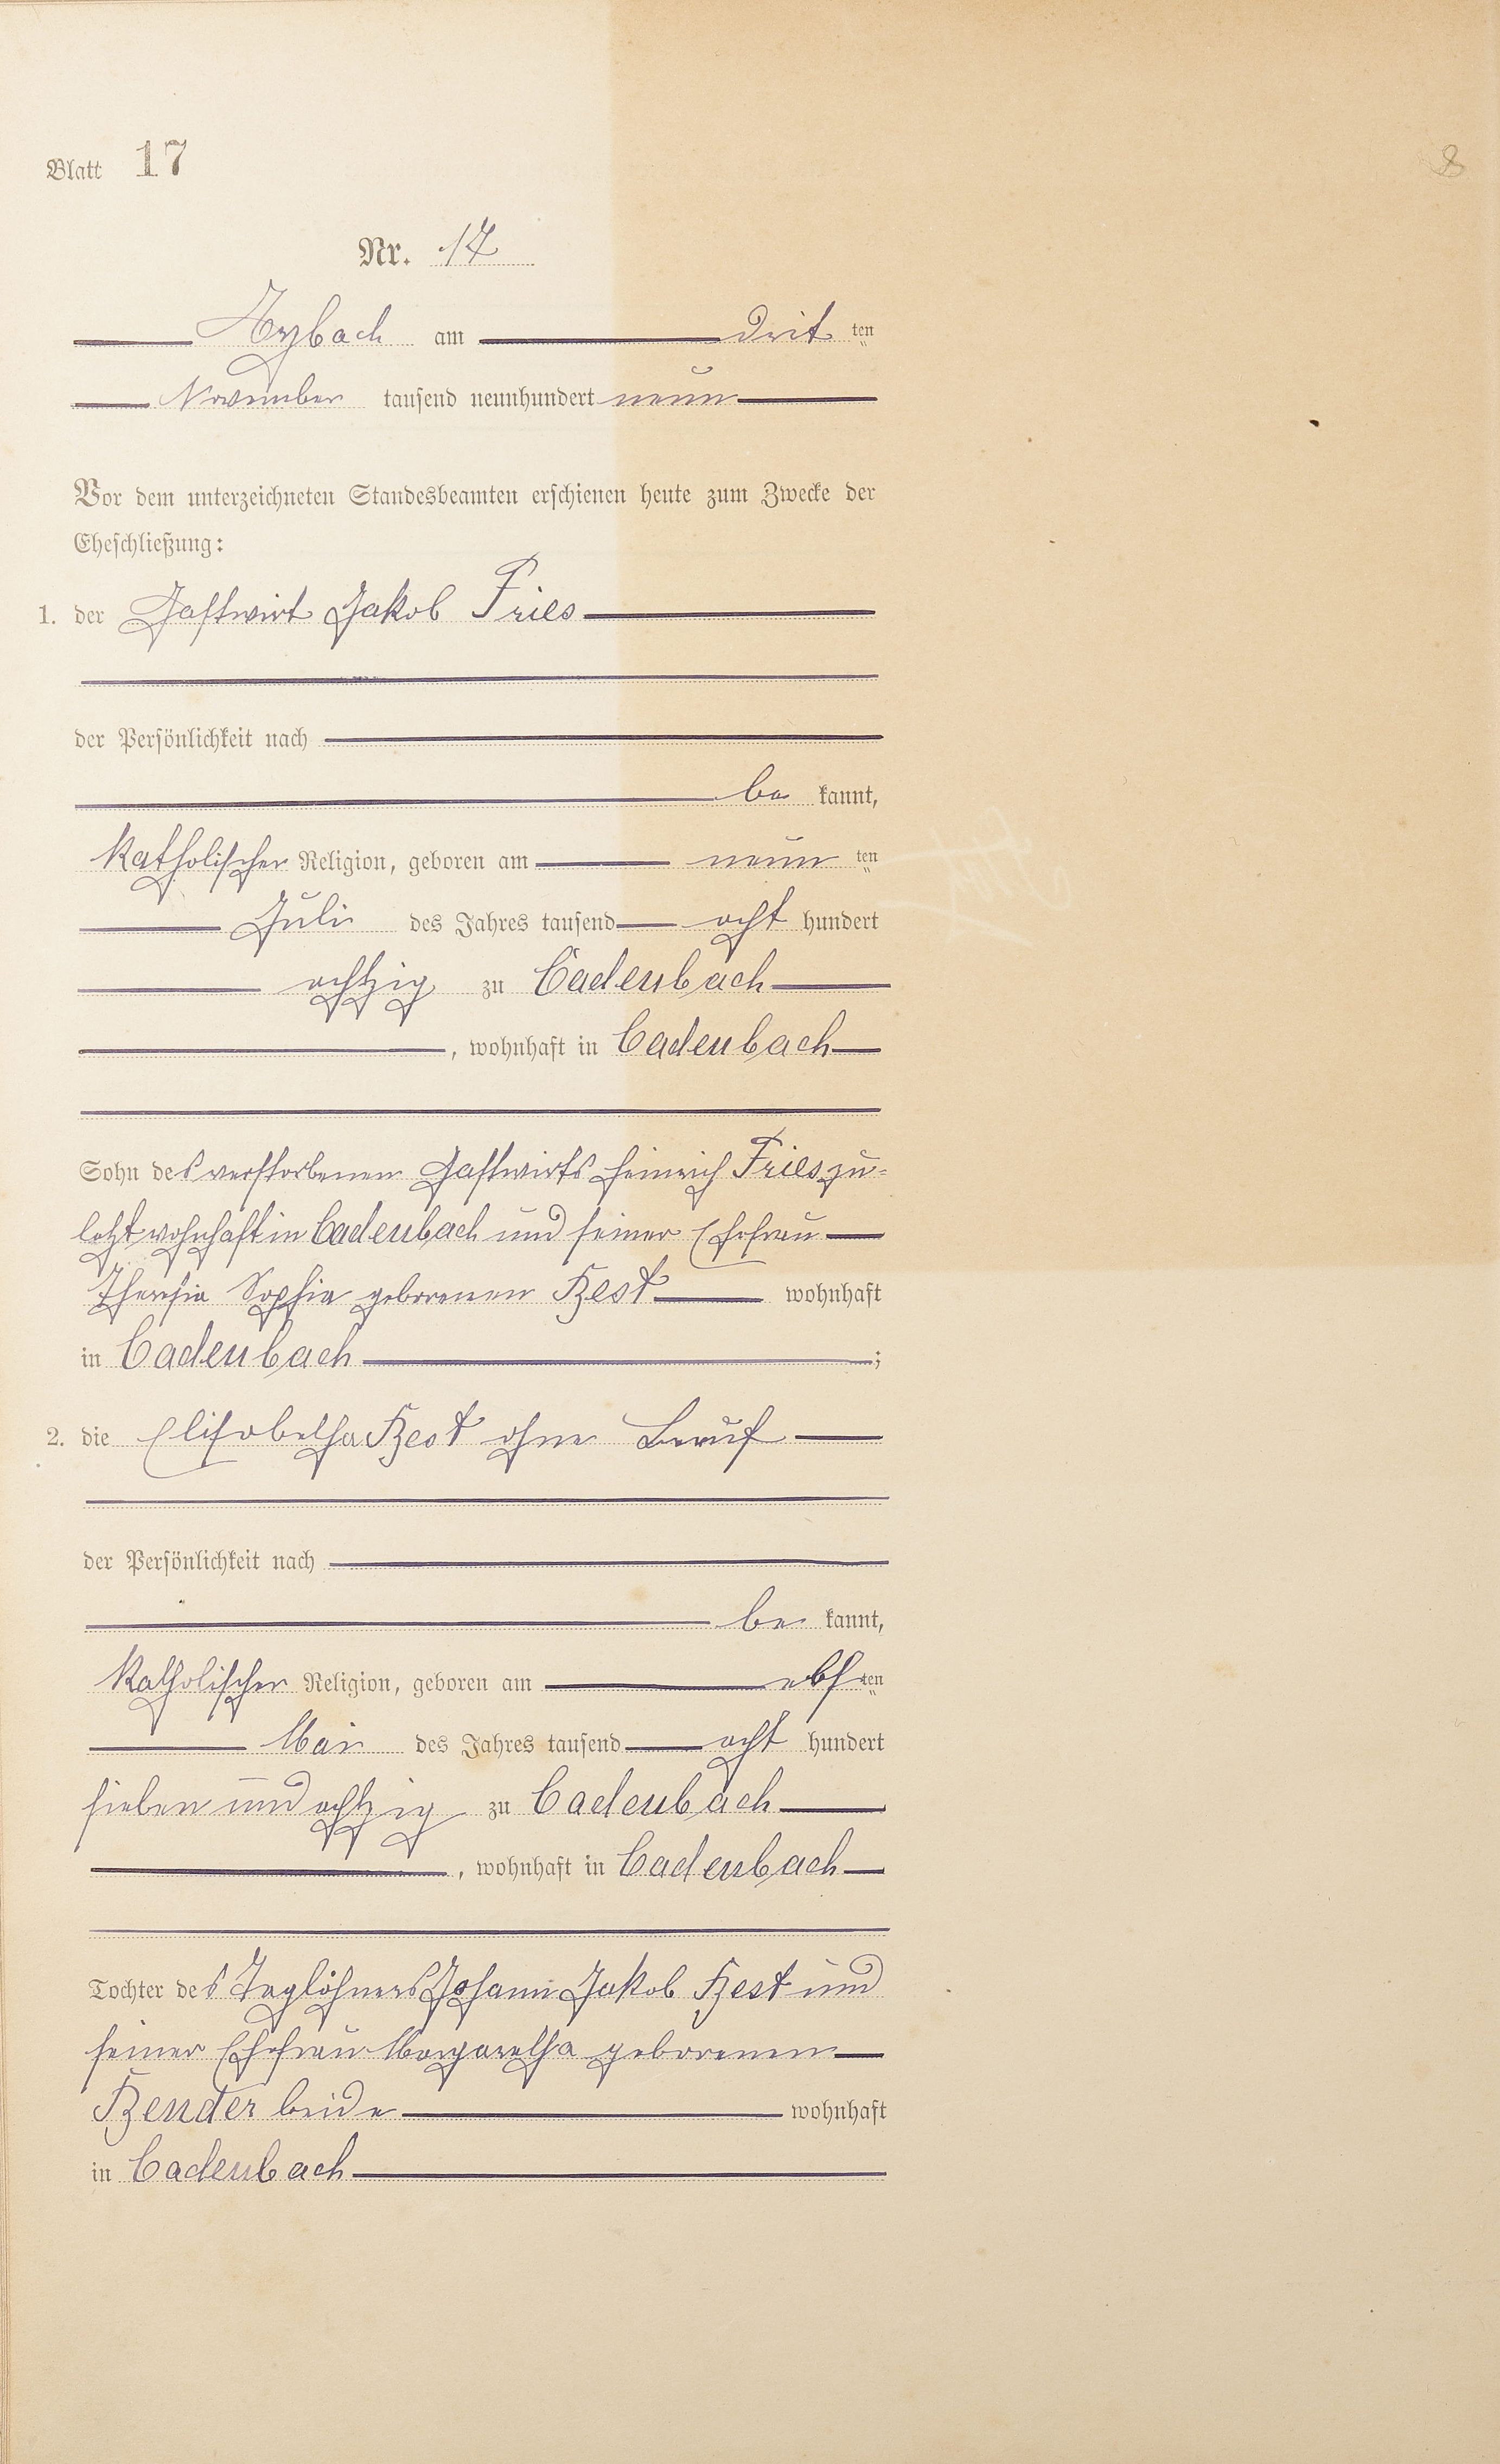 Blatt 17
Nr. 17
Arzbach am drit ten
November tausend neunhundert neun
Vor dem unterzeichneten Standesbeamten erschienen heute zum Zwecke der
Eheschließung:
1. der Gastwirt Jakob Fries
der Persönlichkeit nach
be kannt,
katholischer Religion, geboren am neun ten
Juli des Jahres tausend acht hundert
achtzig zu Cadenbach
, wohnhaft in Cadenbach
Sohn des verstorbenen Gastwirts Heinrich Fries zu-
letzt wohnhaft in Cadenbach und seiner Ehefrau
Theresia Sophia geborenen Best wohnhaft
in Cadenbach ;
2. die Elisabetha Best ohne Beruf
der Persönlichkeit nach
be kannt,
katholischer Religion, geboren am elf ten
Mai des Jahres tausend acht hundert
sieben und achtzig zu Cadenbach
, wohnhaft in Cadenbach
Tochter des Taglöhners Johann Jakob Best und
seiner Ehefrau Margaretha geborenen
Bender beide wohnhaft
in Cadenbach